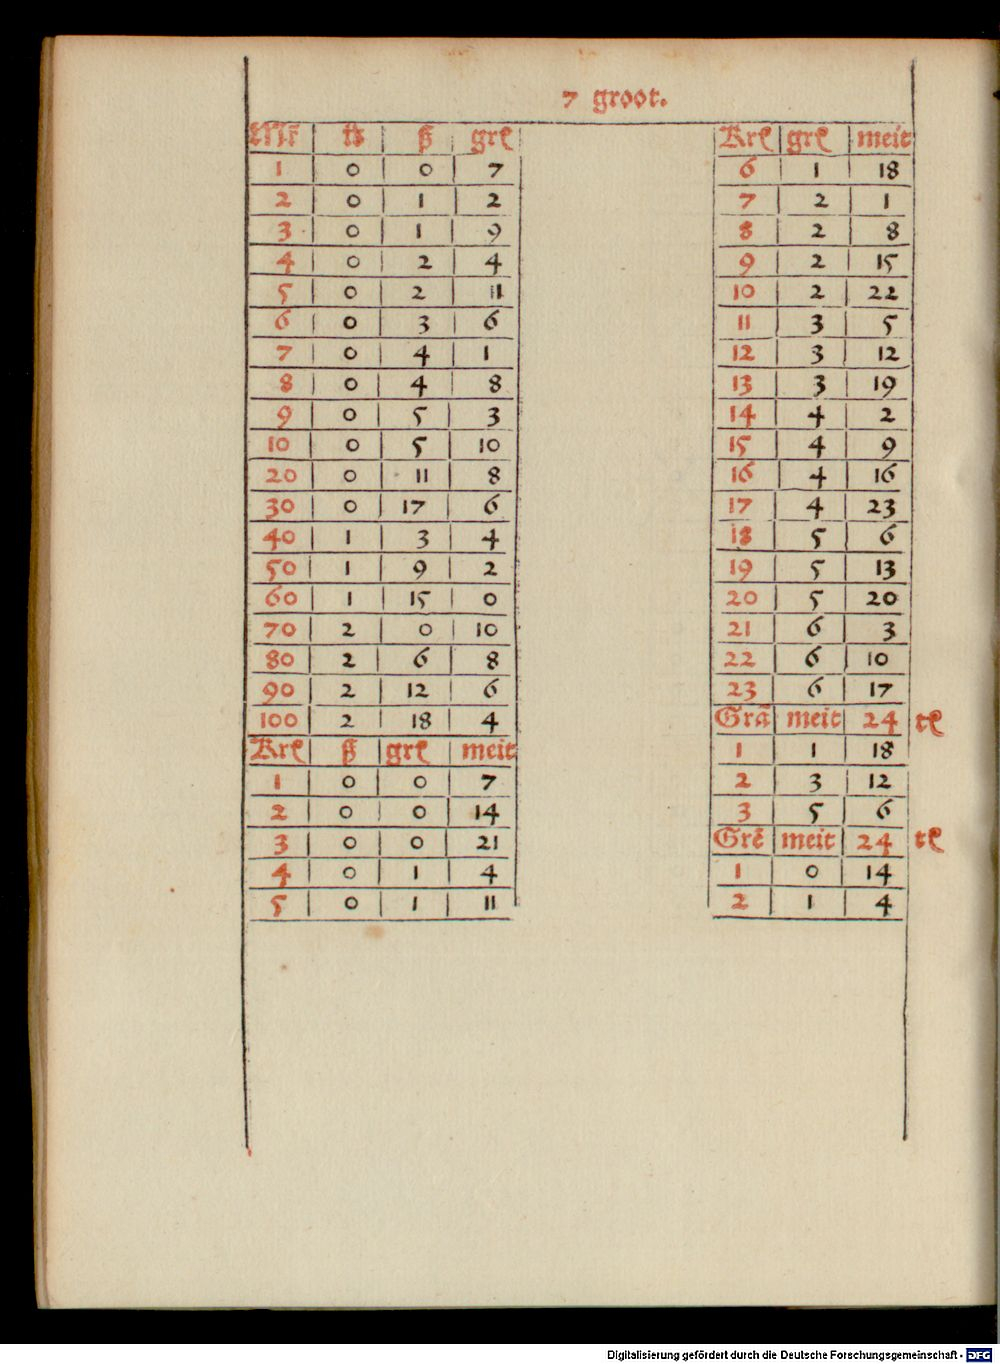 7 groot.
Mr̃ ℔ ß grʠ
1 0 0 7
2 0 1 2
3 0 1 9
4 0 2 4
5 0 2 11
6 0 3 6
7 0 4 1
8 0 4 8
9 0 5 3
10 0 5 10
20 0 11 8
30 0 17 6
40 1 3 4
50 1 9 2
60 1 15 0
70 2 0 10
80 2 6 8
90 2 12 6
100 2 18 4
Krʠ ß grʠ meit
1 0 0 7
2 0 0 14
3 0 0 21
4 0 1 4
5 0 1 11
Krʠ grʠ meit
6 1 18
7 2 1
8 2 8
9 2 15
10 2 22
11 3 5
12 3 12
13 3 19
14 4 2
15 4 9
16 4 16
17 4 23
18 5 6
19 5 13
20 5 20
21 6 3
22 6 10
23 6 17
Grã meit 24 tʠ
1 1 18
2 3 12
3 5 6
Grẽ meit 24 tʠ
1 0 14
2 1 4
Digitalisierung gefördert durch die Deutsche Forschungsgemeinschaft - DFG